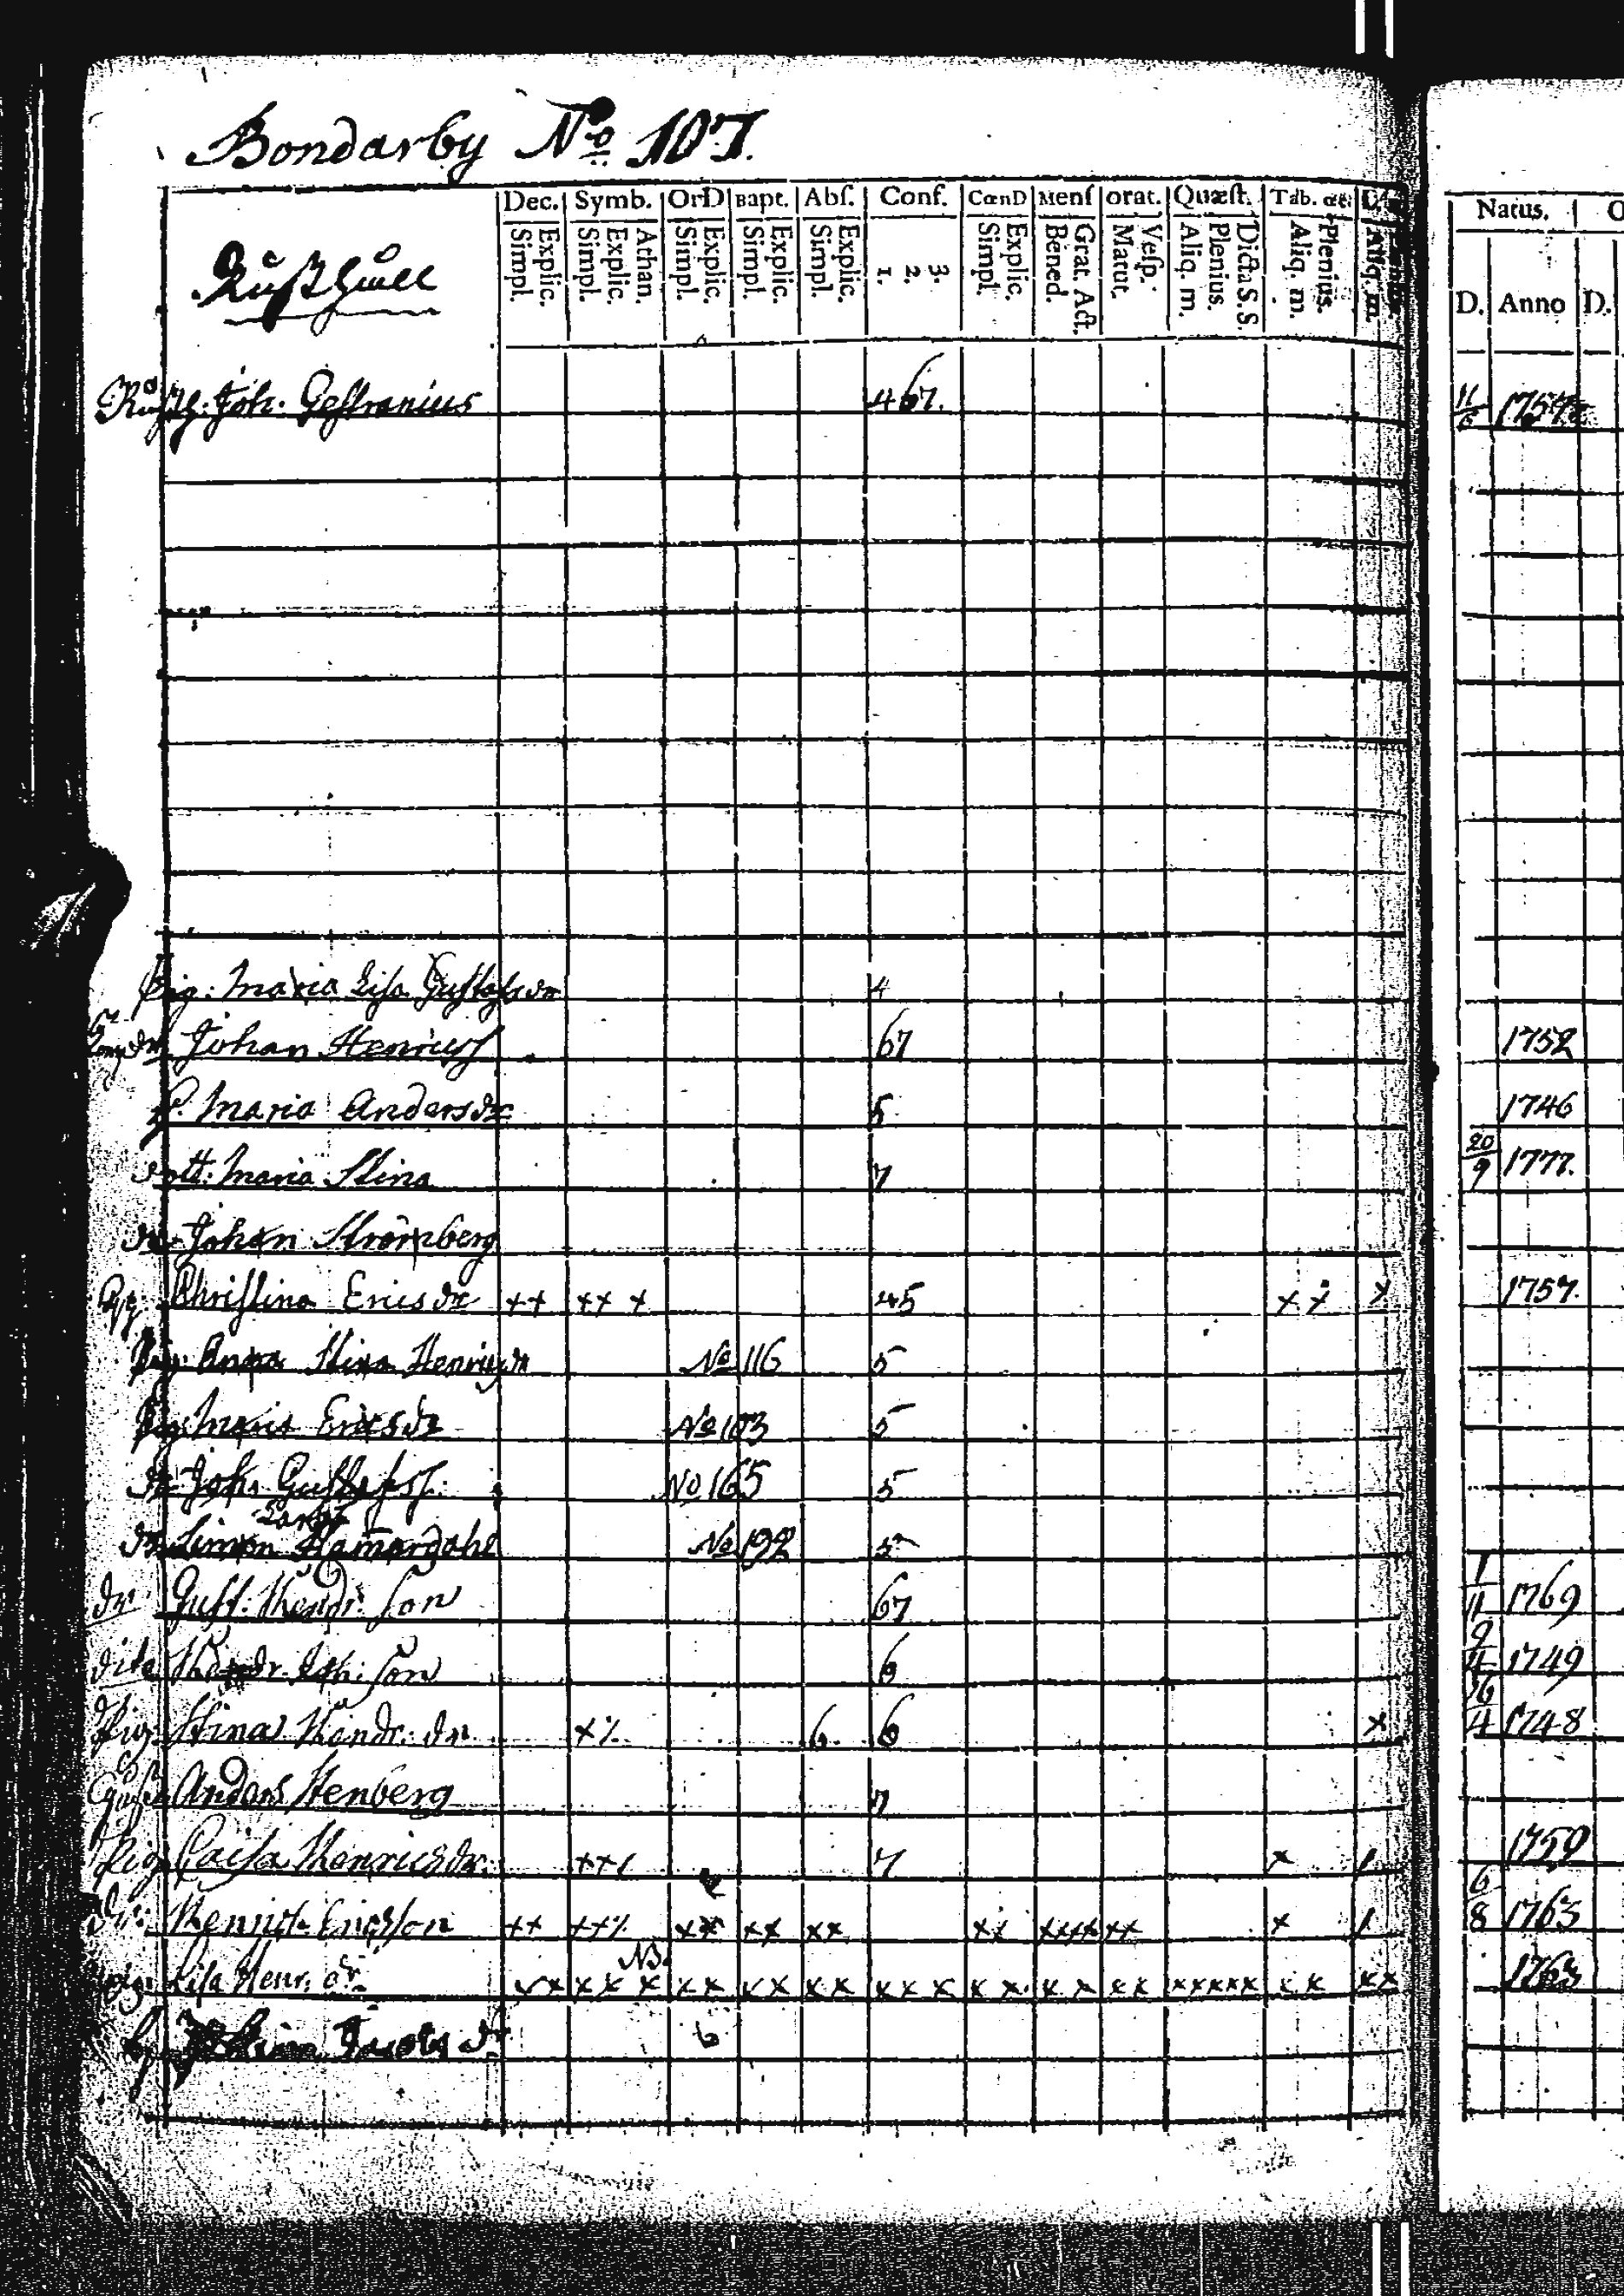 Bondarby No 107.
Dec. Symb. OrD Bapt. Abſ. Conf. CœnD Menſ orat. Quæſt. Tab. œc.
Rusthåll
Explic. Simpl. Athan. Explic. Simpl. Explic. Simpl. Explic. Simpl. Explic. Simpl. 3. 2. 1. Explic. Simpl. Grat. Act. Bened. Veſp. Matut. Dicta S.S. Plenius. Aliq. m. Plenius. Aliq. m. Aliq. m.
Natus.
D. Anno D.
Rusth: Joh. Gestranius 467. 11/6
Pig: Maria Lisa Gustafsdr 4
Johan Henricss 67 1752
h. Maria Andersdr 5 1746
dott: Maria Stina 7 20/9 1777.
dr Johan Strömberg
Christina Ericsdr ++ ++ + 45 x x x 1757.
Pig: Anna Stina Henricsdr No 116 5
Pig: Maria Ericsdr No 103 5
dr Joh. Gustafss. No 165 5
dr Simon No 192 5
dr. Gust. Hendr. Son 67 1/11 1769
dito Hendr. Joh: Son 6 1749
Pig: Stina Hendr: dr x % 6 6 x 1748
Anders Stenberg 7
Pig Caisa Henricsdr. ++/ 7 x / 1759
Dr: Henrich Ericsson ++ ++% xx xx xx xx xxxx xx x / 6/8 1763
NB.
Pig: Lisa Henr. dr. xx x x x xx x x x x x x x x x x x x x x xxxxx x x xx 1763